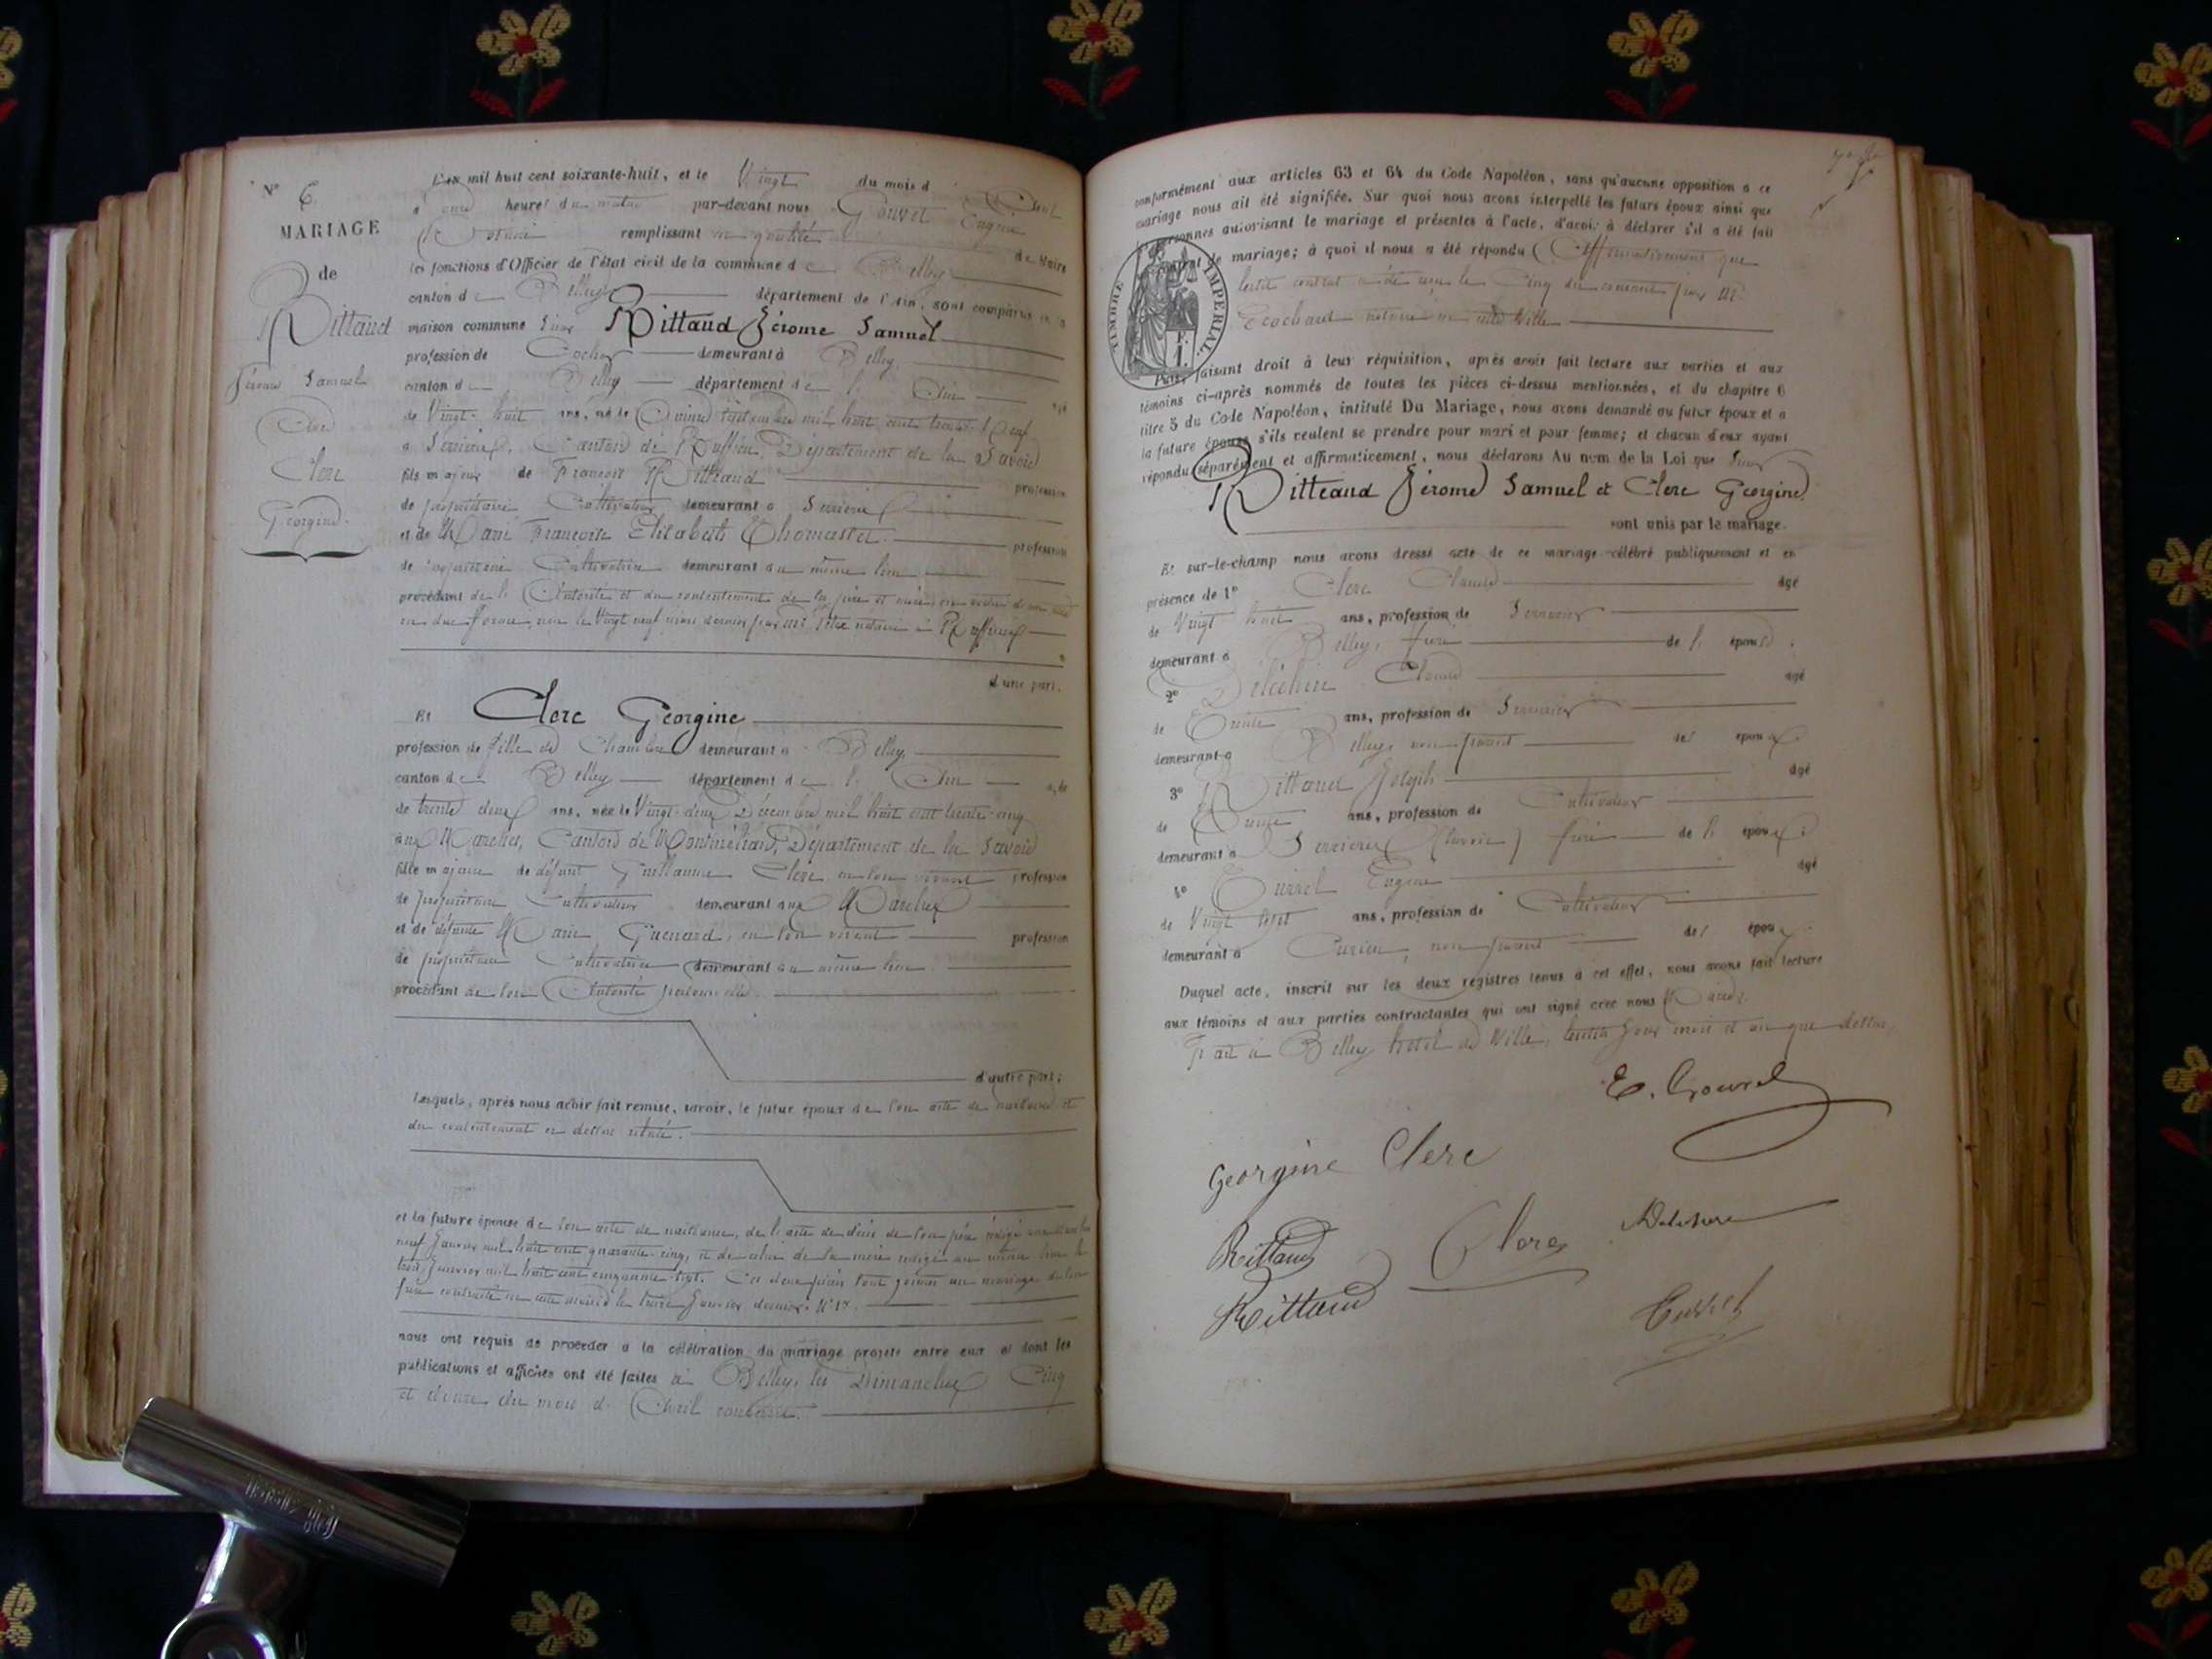 N° 6.
MARIAGE
de
Rittaud
Jérome Samuel
Et
Clerc
Georgine.
L'an mil huit cent soixante-huit, et le Vingt du mois d'Avril
à heures du matin par-devant nous Gouvel Eugène
remplissant en qualité de Maire
les fonctions d'Officier de l'état civil de la commune de Belley
canton de Belley département de l'Ain, sont comparus en la
maison commune Sieur Rittaud Jérome Samuel
profession de Cocher demeurant à Belley,
canton de Belley département de l'Ain âgé
de Vingt-huit ans, né le Quinze Septembre mil huit cent trente-Neuf
à Serrières, Canton de Ruffieu, Département de la Savoie
fils majeur de François Rittaud profession
de propriétaire Cultivateur demeurant à Serrières
et de Marie Françoise Elisabeth Thomasset profession
de propriétaire Cultivatrice demeurant au même lieu
procédant de l'Autorité et du consentement de ses père et mère, en vertu d'un acte
en due forme, reçu le Vingt neuf mars dernier par Me notaire à Ruffieux
d'une part.
Et Clerc Georgine
profession de fille de Chambre demeurant à Belley,
canton de Belley département de l'Ain âgée
de trente deux ans, née le Vingt-deux Décembre mil huit cent trente-cinq
aux Marches, Canton de Montmélian, Département de la Savoie
fille majeure de défunt Guillaume Clerc, en son vivant profession
de propriétaire Cultivateur demeurant aux Marches
et de défunte Marie Guenard, en son vivant profession
de propriétaire Cultivatrice demeurant au même lieu.
procédant de son Autorité personnelle.
d'autre part;
Lesquels, après nous avoir fait remise, savoir, le futur époux de son acte de naissance et
du consentement ci-dessus relaté.
et la future épouse de son acte de naissance, de l'acte de décès de son père rédigé aux Marches
neuf Janvier mil huit cent quarante-cinq, et de celui de sa mère rédigé au même lieu le
trois Janvier mil huit cent cinquante-sept. Ces deux pièces sont jointes au mariage de son
frère contracté en cette mairie le treize Janvier dernier. N° 17.
nous ont requis de procéder à la célébration du mariage projeté entre eux et dont les
publications et affiches ont été faites à Belley, les Dimanches Cinq
et douze du mois d'Avril courant.
conformément aux articles 63 et 64 du Code Napoléon, sans qu'aucune opposition à ce
mariage nous ait été signifiée. Sur quoi nous avons interpellé les futurs époux ainsi que
personnes autorisant le mariage et présentes à l'acte, d'avoir à déclarer s'il a été fait
contrat de mariage; à quoi il nous a été répondu Affirmativement que
ledit contrat a été reçu le Cinq du courant par Me
Ecochard notaire en cette Ville
TIMBRE IMPERIAL.
1 F.
Puis, faisant droit à leur réquisition, après avoir fait lecture aux parties et aux
témoins ci-après nommés de toutes les pièces ci-dessus mentionnées, et du chapitre 6
titre 5 du Code Napoléon, intitulé Du Mariage, nous avons demandé au futur époux et à
la future épouse s'ils veulent se prendre pour mari et pour femme; et chacun d'eux ayant
répondu séparément et affirmativement, nous déclarons Au nom de la Loi que Sieur
Ritteaud Jérome Samuel et Clerc Georgine
sont unis par le mariage.
Et sur-le-champ nous avons dressé acte de ce mariage célébré publiquement et en
présence de 1° Clerc Claude âgé
de Vingt huit ans, profession de Serrurier
demeurant à Belley, frère de l'épouse.
2° Claude âgé
de Trente ans, profession de Serrurier
demeurant à Belley, non parent des époux.
3° Rittaud Joseph âgé
de Trente ans, profession de Cultivateur
demeurant à Serrières (Savoie) frère de l'époux;
4° Eugène âgé
de Vingt sept ans, profession de Cultivateur
demeurant à non parent des époux.
Duquel acte, inscrit sur les deux registres tenus à cet effet, nous avons fait lecture
aux témoins et aux parties contractantes qui ont signé avec nous Maire.
Fait à Belley hôtel de Ville, lesdits jour mois et an que dessus
E. Gouvel
Georgine Clerc
Rittaud
Clerc
Rittaud